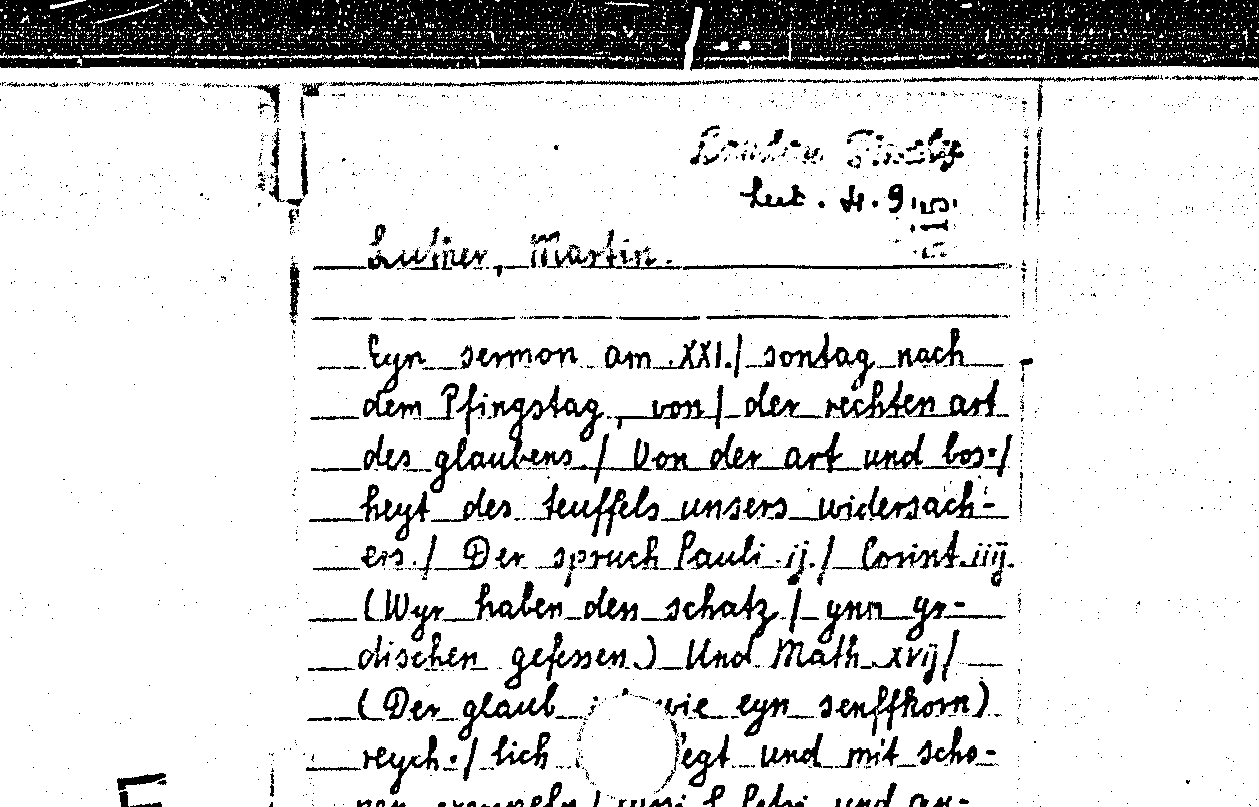 Lut. 4. 9.
Luther, Martin.
Eyn sermon am .XXI./ sontag nach
dem Pfingstag, von/ der rechten art
des glaubens./ Von der art und bos-/
heyt des teuffels unsers widersach-
ers./ Der spruch Pauli .ij./ Corint.iiij.
(Wyr haben den schatz/ ynn yr-
dischen gefessen.) Und Math .xvij/
(Der glaub wie eyn senffkorn)
reych./ lich und mit scho-
nen exempeln/ und an-